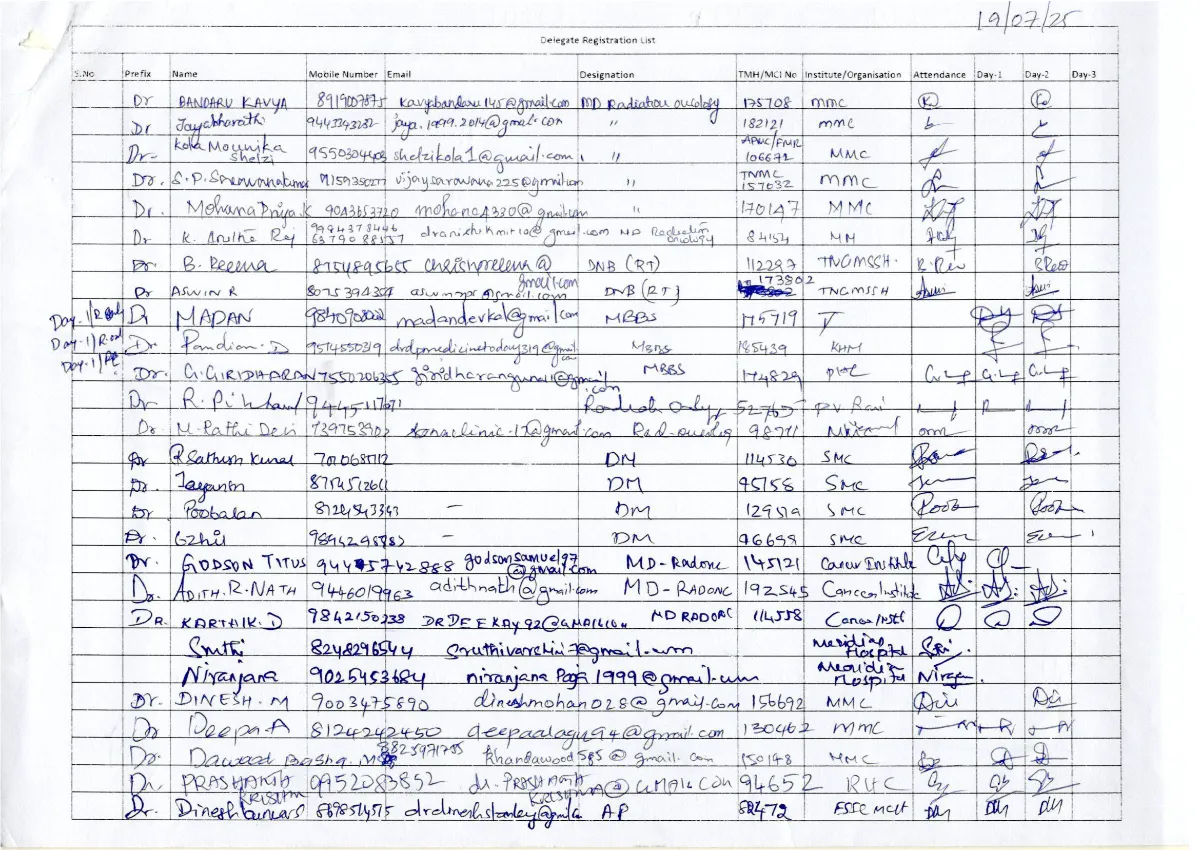 19/07/25
Delegate Registration List
S.No Prefix Name Mobile Number Email Designation TMH/MCI No Institute/Organisation Attendance Day-1 Day-2 Day-3
Dr BANDARU KAVYA 8919007875 kavyabandaru145@gmail.com MD Radiation oncology 175708 MMC
Dr Jayabharathi 9443343232 jaya.1999.2014@gmail.com " 182121 MMC
Dr- Kola Mounika Shelzi 9550304403 shelzikola1@gmail.com " APMC/FMR 106672 MMC
Dr. S.P. Saravanakumar 9159350277 vijaysarowana225@gmail.com " TNMC 157032 MMC
Dr. Mohana Priya.K 9043653720 mohana4330@gmail.com " 170147 MMC
Dr K. Anitha Raj 9994373446 63790 88557 @gmail.com MD Radiation oncology 84154 MM
Dr B. Reena 8754895655 DNB (RT) 112297 TNGMSSH. B.Ree BRee
gmail.com
Dr ASWIN R 8075394354 @gmail.com DNB (RT) 173802 TNGMSSH
Day-1/R Dr MADAN 9840908022 madandevkal@gmail.com MBBS 175719
Day-1/R Dr. Pandian.D 9514550319 drdpmedicinetoday319@gmail.com MBBS 185439 KHM
Day-1/ Dr. G.GIRIDHARAN 7550206355 giridharanguna1@gmail.com MBBS 174829
Dr R. 9445117671 52765
Dr. M. Pathi Devi 739753902 sonaclinic.17@gmail.com Rad-oncolog 98711
Dr R Sathish Kumar 7010685712 DM 114530 SMC
Dr. Jayanth 8754512611 DM 95158 SMC
Dr Poobalan 8124543343 — DM 129519 SMC Poob Poob
Dr. Ezhil 9894295782 — DM 96698 SMC
Dr. GODSON TITUS 9445742888 godsonsamuel97@gmail.com MD-Radonc 145121 Cancer Institute
Dr. ADITH.R.NATH 9446019963 adithnath@gmail.com MD-RADONC 192545 Cancer Institute
DR. KARTHIK.D 9842150238 DRDEEKAY92@GMAIL.COM MD RADONC 114558 Cancer Inst
Sruthi 8248296544 sruthivarshini7@gmail.com Meridian Hospital Sri
Niranjana 9025453684 niranjana Paga 1999@gmail.com Meridian Hospital Niran
Dr. DINESH.M 9003475890 dineshmohan028@gmail.com 156692 MMC
Dr Deepa.A 8124242450 deepaalagu94@gmail.com 130462 MMC
Dr. Dawood Basha. 8825971755 Khandawood585@gmail.com 150148 MMC
Dr. PRASHANTH KRISHNA 9952085852 dr. PRASHANTH KRISHNA@GMAIL.COM 94652
Dr. Dinesh kumar S 8678514515 drdineshstanley@gmail.com AP 82472 ESIC MC